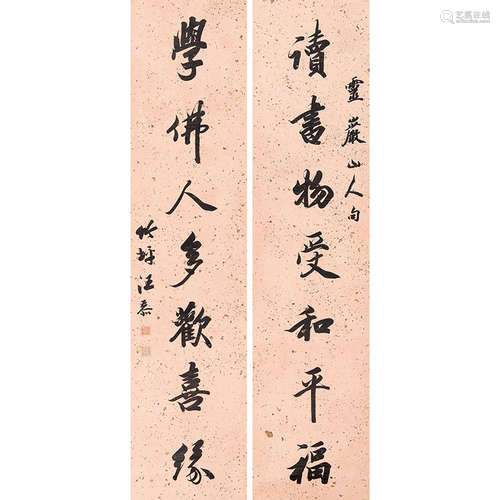 靈巖山人句
讀書物受和平福
學佛人多歡喜緣
竹坪汪恭